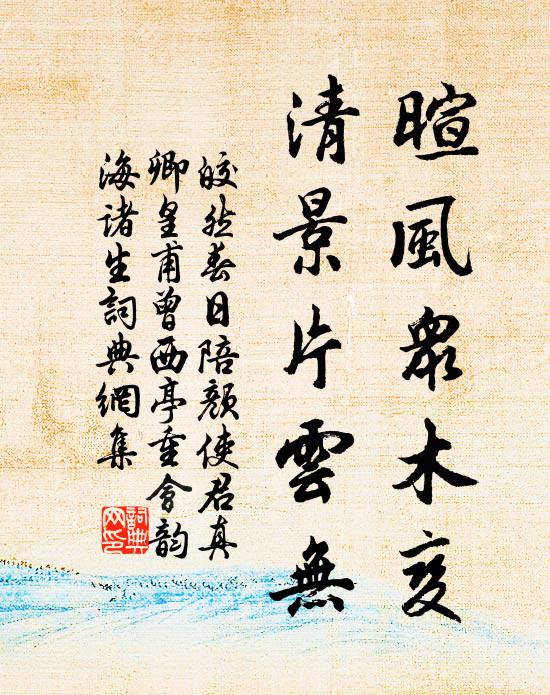 暄風衆木變
清景片雲無
皎然春日陪顔使君真
卿皇甫曾西亭重會韵
海诸生詞典網集
詞典
网印